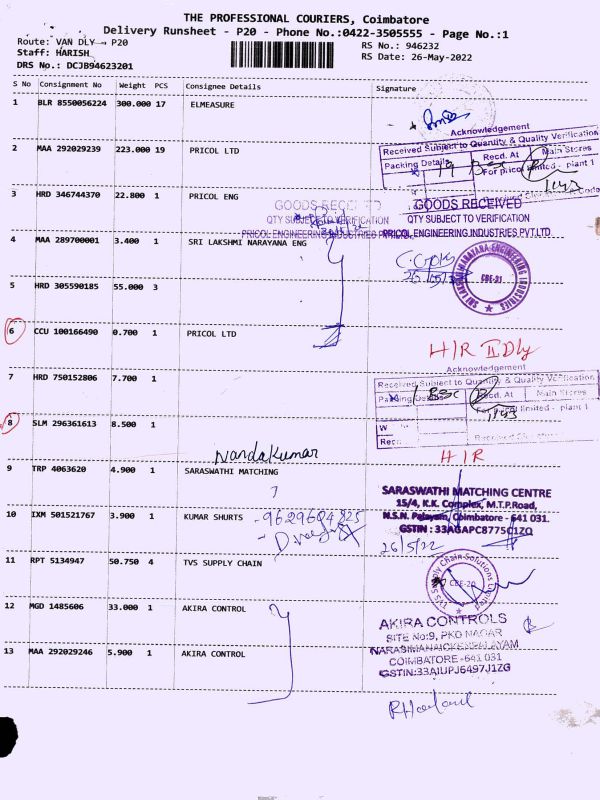 THE PROFESSIONAL COURIERS, Coimbatore
Delivery Runsheet - P20 - Phone No.:0422-3505555 - Page No.:1
Route: VAN DLY - P20
Staff: HARISH
DRS No.: DCJB94623201
RS No.: 946232
RS Date: 26-May-2022
S No Consignment No Weight PCS Consignee Details Signature
1 BLR 8550056224 300.000 17 ELMEASURE
Acknowledgement
Received Subject to Quantity & Quality Verification
Packing Details Recd. At Main Stores
For pricol limited - plant 1
2 MAA 292029239 223.000 19 PRICOL LTD
19 Box
3 HRD 346744370 22.800 1 PRICOL ENG
GOODS RECEIVED
QTY SUBJECT TO VERIFICATION
PRICOL ENGINEERING INDUSTRIES
GOODS RECEIVED
QTY SUBJECT TO VERIFICATION
PRICOL ENGINEERING INDUSTRIES PVT.LTD
4 MAA 289700001 3.400 1 SRI LAKSHMI NARAYANA ENG
SRI LAKSHMI NARAYANA ENGINEERING INDUSTRIES
CBE-31
5 HRD 305590185 55.000 3
6 CCU 100166490 0.700 1 PRICOL LTD
H/R II Dly
Acknowledgement
Received Subject to Quantity & Quality Verification
Packing Details Recd. At Main Stores
For pricol limited - plant 1
7 HRD 750152806 7.700 1
8 SLM 296361613 8.500 1
H/R
Nandakumar
9 TRP 4063620 4.900 1 SARASWATHI MATCHING
SARASWATHI MATCHING CENTRE
15/4, K.K. Complex, M.T.P.Road,
N.S.N. Palayam, Coimbatore - 641 031.
GSTIN : 33AGAPC8775C1ZQ
10 IXM 501521767 3.900 1 KUMAR SHURTS
- 9629604825
26/5/22
11 RPT 5134947 50.750 4 TVS SUPPLY CHAIN
TVS Supply Chain Solutions Limited
CBE-20
12 MGD 1485606 33.000 1 AKIRA CONTROL
AKIRA CONTROLS
SITE No:9, PKD NAGAR
NARASIMANAICKENPALAYAM
COIMBATORE -641 031
GSTIN:33AIUPJ6497J1ZG
13 MAA 292029246 5.900 1 AKIRA CONTROL